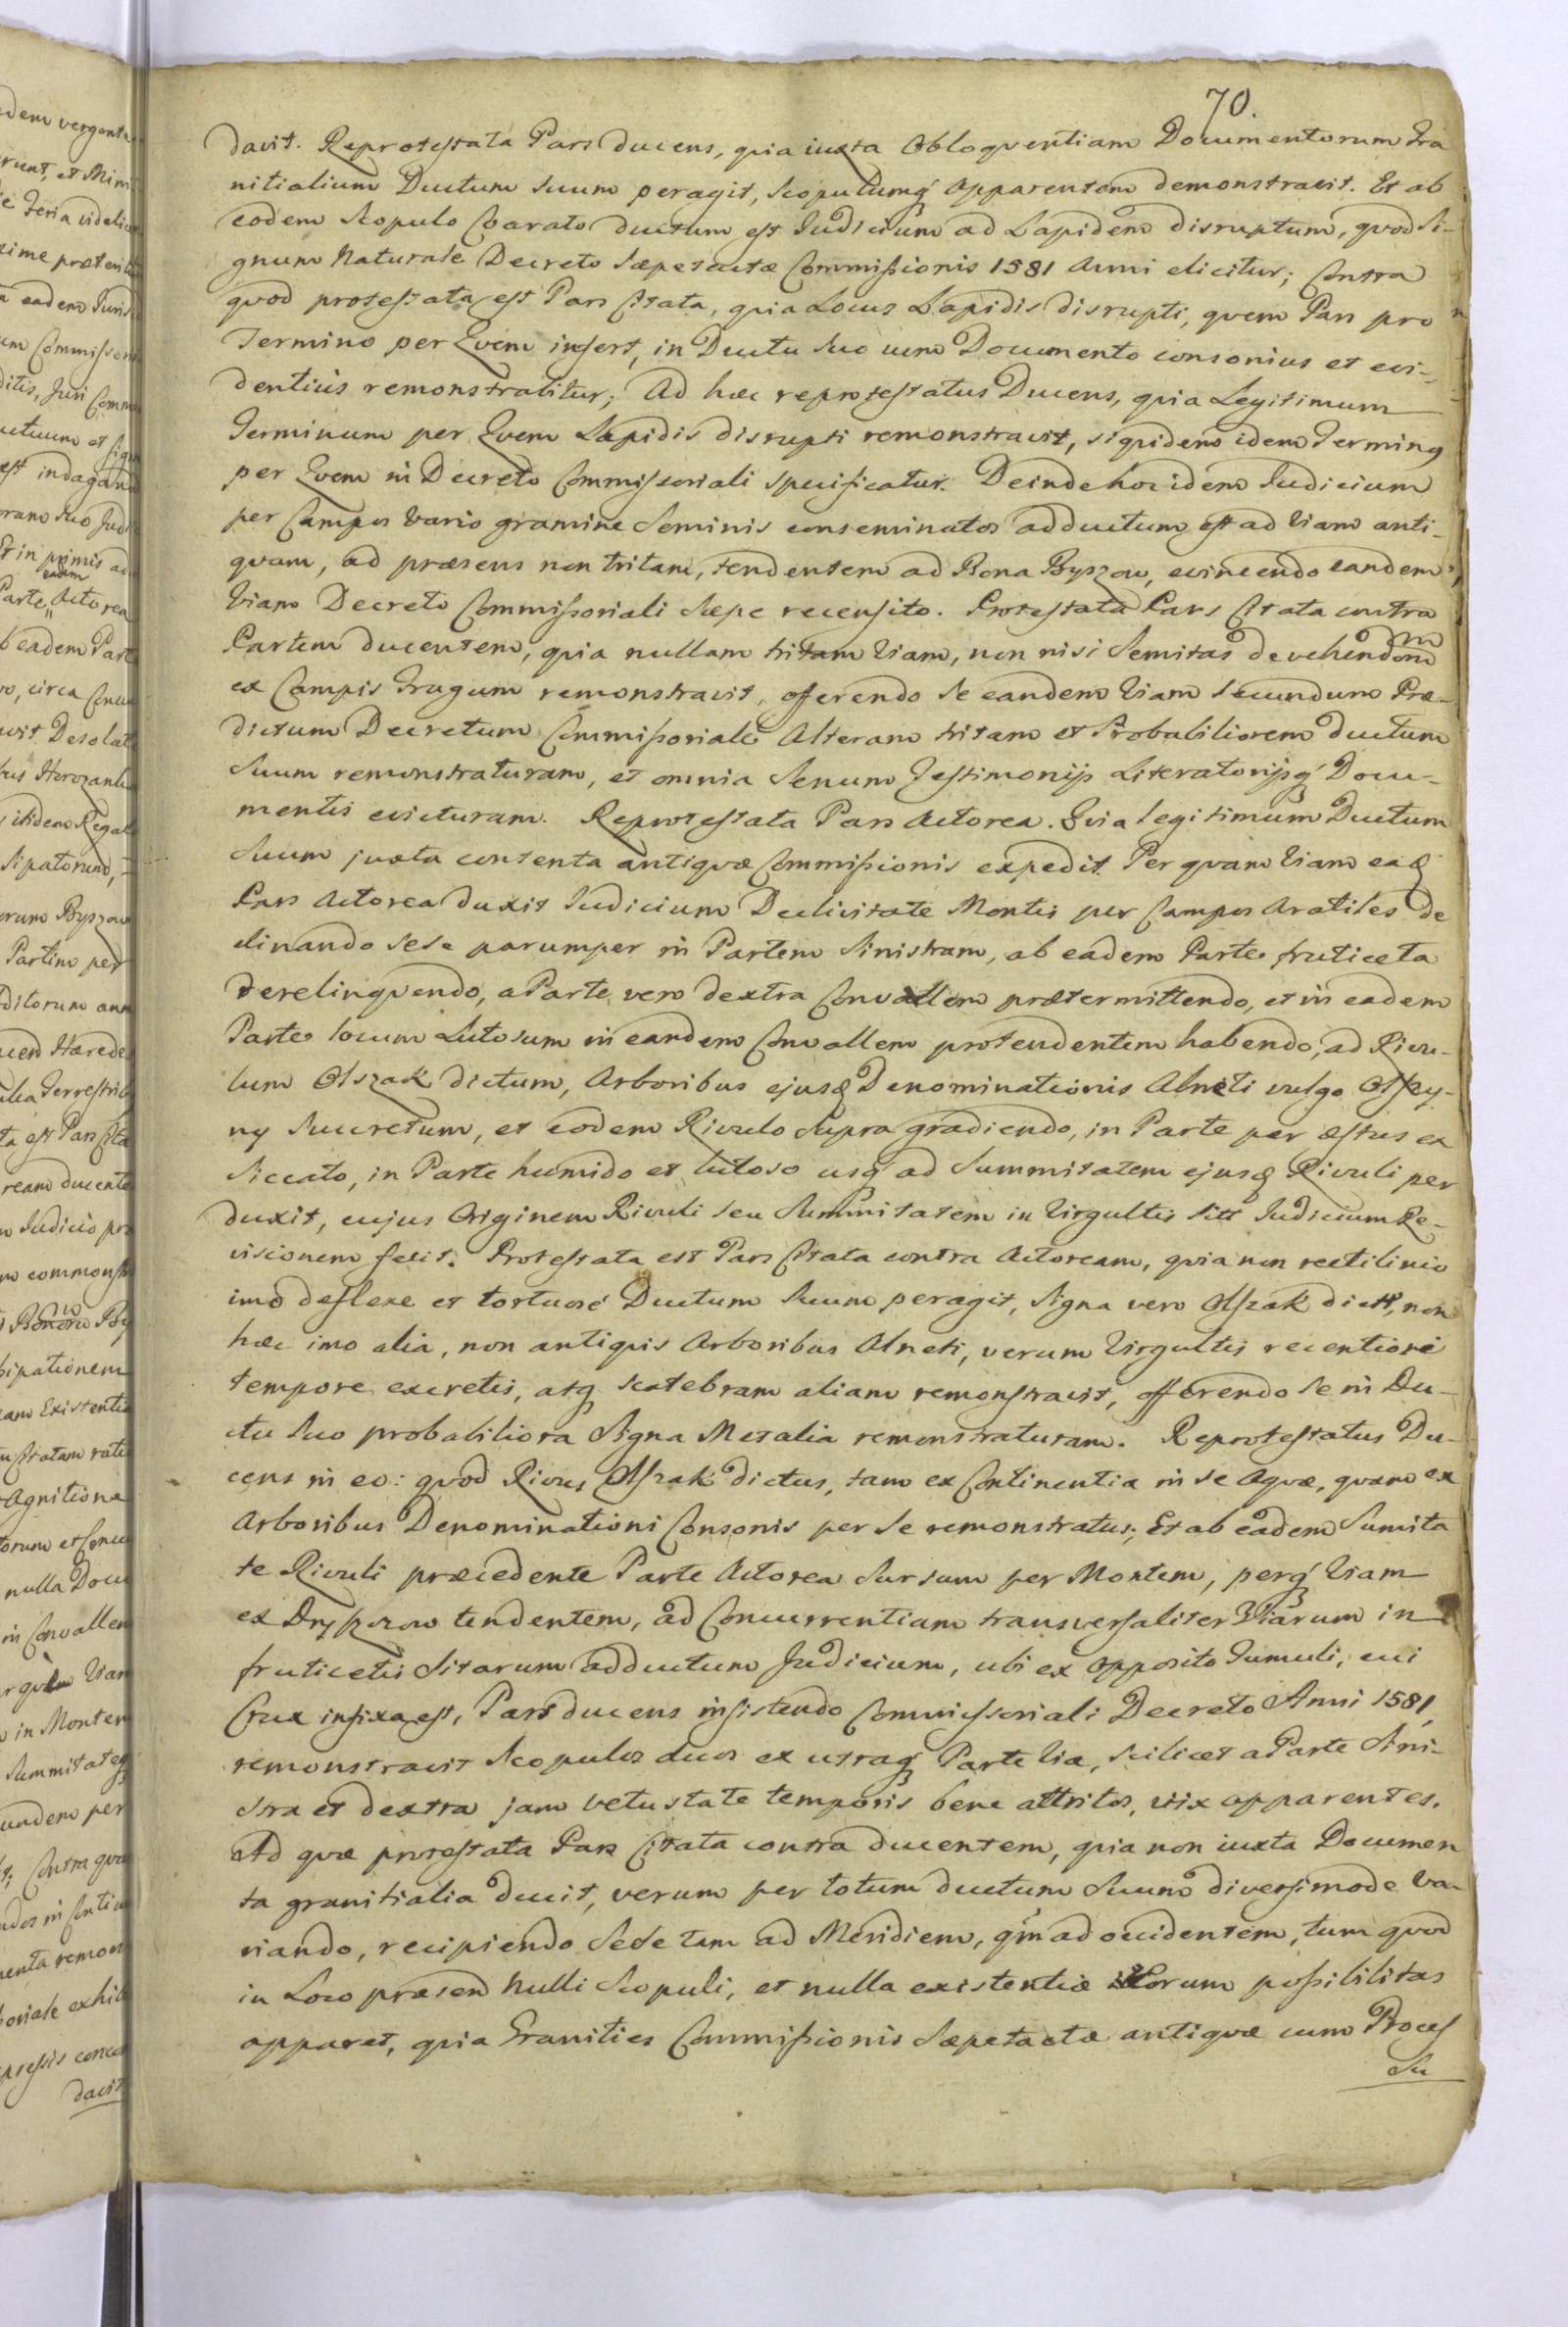 70.
davit. Reprotestata Pars ducens, quia iuxta Obloquentiam Documentorum Gra
nitialium Ductum suum peragit, scopulumq́ apparentem demonstravit. Et ab
eodem scopulo Coarato ductum est Judicium ad Lapidem disruptum, quod si-
gnum Naturale Decreto sæpetactæ Commissionis 1581 Anni elicitur; Contra
quod protestata est Pars Citata, quia Locus Lapidis disrupti, quem Pars pro
Termino per Quem infert, in Ductu suo cum Documento consonius et evi-
dentius remonstrabitur; Ad hæc reprotestatus Ducens, quia Legitimum
Terminum per Quem Lapidis disrupti remonstravit, siquidem idem Terming
per Quem in Decreto Commissoriali specificatur. Deinde hoc idem Judicium
per Campos vario gramine seminis conseminatos adductum est ad Viam anti-
quam, ad præsens non tritam, tendentem ad Bona Byszow, evincendo eandem
Viam Decreto Commissoriali sæpe recensito. Protestata Pars Citata contra
Partem ducentem, quia nullam tritam Viam, non nisi semitas devehendom
ex Campis frugum remonstravit, offerendo se eandem Viam secundum Præ-
dictum Decretum Commissoriale Alteram tritam et Probabiliorem ductum
suum remonstraturam, et omnia senum Testimonijs Literatorijsq́ Docu-
mentis evicturam. Reprotestata Pars Actorea. Quia legitimum Ductum
suum juxta contenta antiquæ Commissionis expedit. Per quam Viam eaq
Pars Actorea duxit Judicium Declivitate Montis per Campos Aratiles de
clinando sese parumper in Partem Sinistram, ab eadem Parte fruticeta
derelinquendo, a Parte vero dextra Convallem prætermittendo, et in eadem
Parte locum Lutosum in eandem Convallem protendentem habendo, ad Rivu-
lum Olszak dictum, Arboribus ejusq Denominationis Alneti vulgo Olszy-
ny succretum, et eodem Rivulo supra gradiendo, in Parte per æstus ex
siccato, in Parte humido et lutoso usq́ ad summitatem ejusq Rivuli per
duxit, cujus Originem Rivuli seu summitatem in Virgultis siti Judicium Re-
visionem fecit. Protestata est Pars Citata contra Actoream, quia non rectilinio
imo deflexe et tortuose Ductum suum peragit, Signa vero Olszak dicti, non
hæc imo alia, non antiquis Arboribus Alneti, verum Virgultis recentiori
tempore excretis, atq́ scatebram aliam remonstravit, offerendo se in Du-
ctu suo probabiliora Signa Metalia remonstraturam. Reprotestatus Du-
cens in eo: quod Rivus Olszak dictus, tam ex Continentia in se Aquæ, quam ex
Arboribus Denominationi Consonis per se remonstratus; Et ab eadem Sumita
te Rivuli præcedente Parte Actorea sursum per Montem, perq́ Viam
ex Dryszczow tendentem, ad Concurrentiam transversaliter Viarum in
fruticetis sitarum adductum Judicium, ubi ex opposito Tumuli, cui
Crux infixa est, Pars ducens insistendo Commissoriali Decreto Anni 1581,
remonstravit Scopulos duos ex utraq́ Parte Viæ, scilicet a Parte Sini-
stra et dextra jam vetustate temporis bene attritos, vix apparentes.
Ad quæ protestata Pars Citata contra ducentem, quia non iuxta Documen
ta granitialia ducit, verum per totum ductum suum diversimode va-
riando, recipiendo sese tam ad Meridiem, qm̄ ad occidentem, tum quod
in Loco præsen nulli Scopuli, et nulla existentiæ illorum possibilitas
apparet, quia Granities Commissionis sæpetactæ antiquæ cum Proces
su